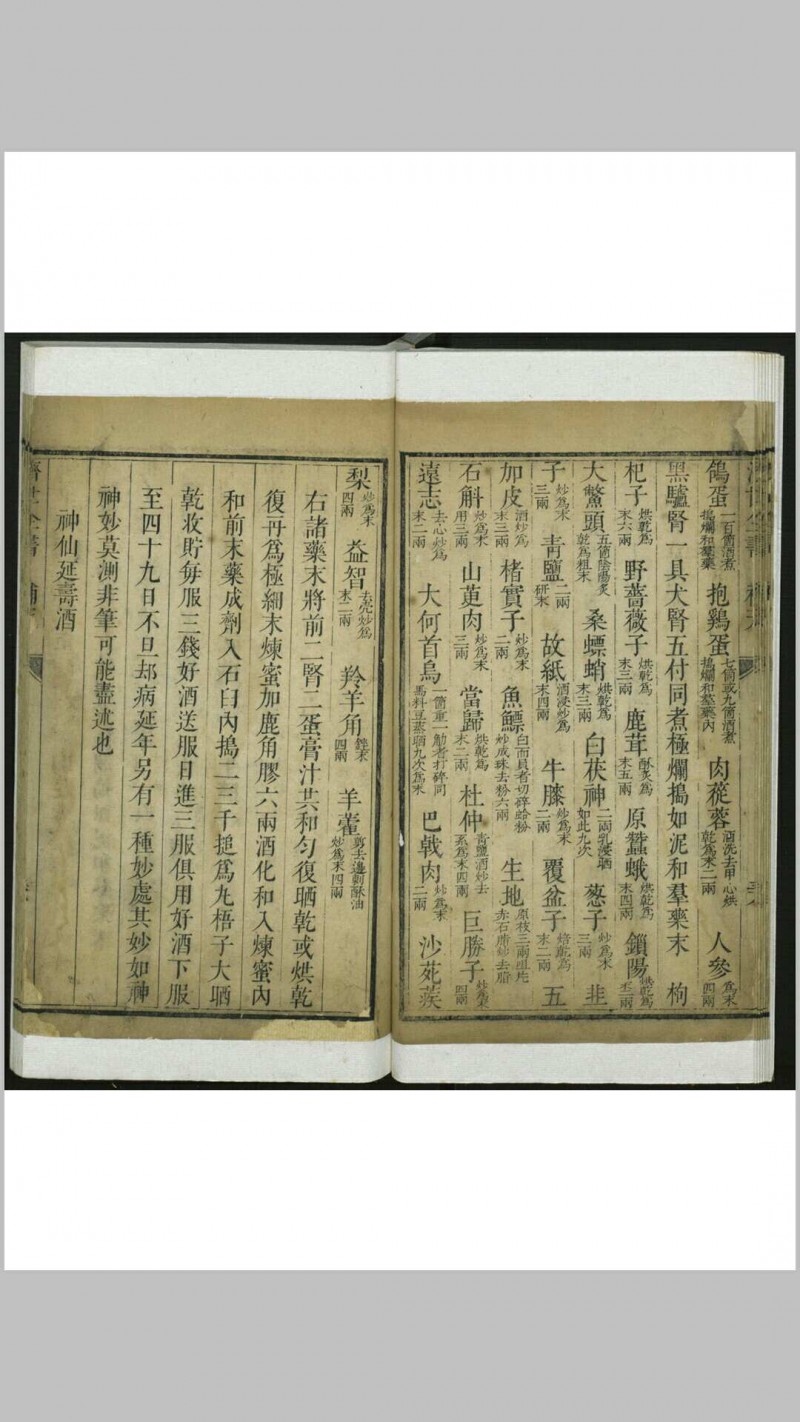 鴿蛋一百箇酒煮搗爛和羣藥 抱鷄蛋七箇或九箇酒煮搗爛和羣藥內 肉蓯蓉酒洗去甲心烘乾爲末二兩 人參爲末四兩
黑驢腎一具犬腎五付同煮極爛搗如泥和羣藥末 枸
杞子烘乾爲末六兩 野薔薇子烘乾爲末三兩 鹿茸酥炙爲末五兩 原蠶蛾烘乾爲末四兩 鎖陽烘乾爲末三兩
大鱉頭五箇陰陽炙乾爲粗末 桑螵蛸烘乾爲末三兩 白茯神二兩乳浸晒如此九次 葱子炒爲末三兩 韭
子炒爲末三兩 青鹽二兩研末 故紙酒浸炒爲末四兩 牛膝炒爲末二兩 覆盆子焙乾爲末二兩 五
加皮酒炒爲末三兩 楮實子炒爲末二兩 魚鰾白而貝者切碎蛤粉炒成珠去粉六兩 生地原枝三兩
石斛炒爲末用三兩 山萸肉炒爲末三兩 當歸烘乾爲末二兩 杜仲青鹽酒炒去系爲末四兩 巨勝子炒爲末四兩
遠志去心炒爲末二兩 大何首烏一箇重一觔者打碎同馬料豆蒸晒九次爲末 巴戟肉炒爲末二兩 沙苑蒺
梨炒爲末四兩 益智去壳炒爲末二兩 羚羊角銼末四兩 羊藿剪去邊刺酥油炒爲末四兩
右諸藥末將前二腎二蛋膏汁共和勻復晒乾或烘乾
復再爲極細末煉蜜加鹿角膠六兩酒化和入煉蜜內
和前末藥成劑入石臼內搗二三千搥爲丸梧子大晒
乾收貯每服三錢好酒送服日進三服俱用好酒下服
至四十九日不旦却病延年另有一種妙處其妙如神
神妙莫測非筆可能盡述也
神仙延壽酒
濟世全書